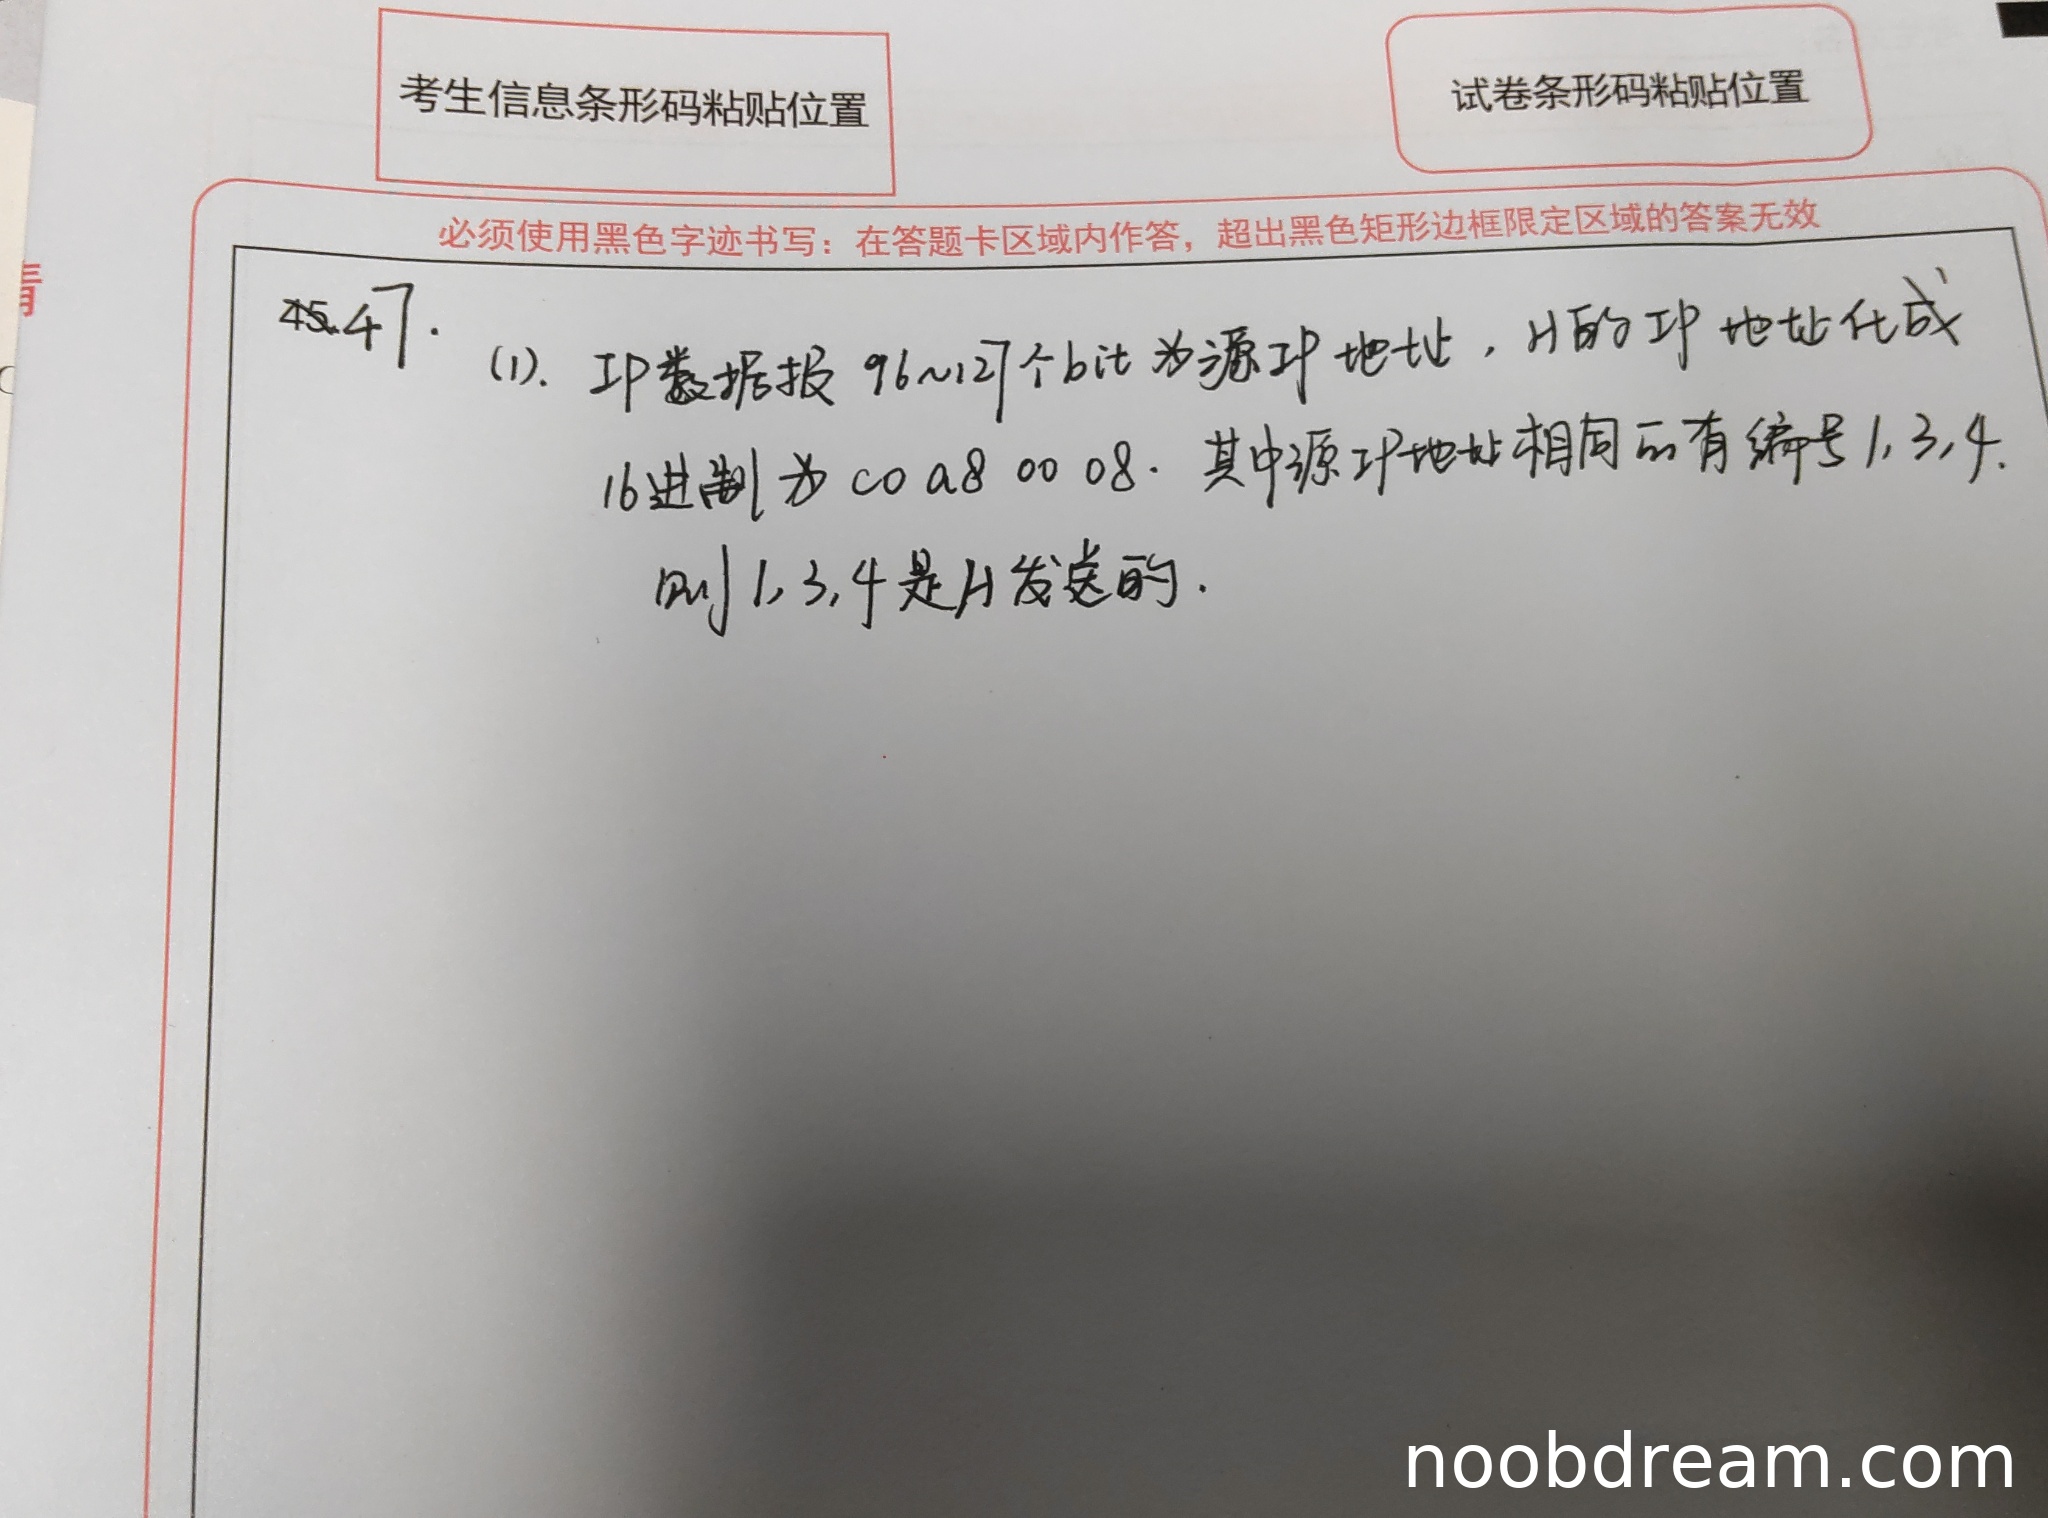 考生信息条形码粘贴位置
试卷条形码粘贴位置
必须使用黑色字迹书写：在答题卡区域内作答，超出黑色矩形边框限定区域的答案无效
47.
(1). IP数据报 96~127个bit为源IP地址，H的IP地址化成
16进制为 c0 a8 00 08. 其中源IP地址相同的有编号1,3,4.
则1,3,4是H发送的.
noobdream.com